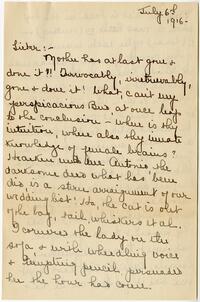 July 6th
1916 -
Sister: -
Mother has at last gone &
done it!! Irrevocably, irretrievably,
gone & done it! What, can't my
perspicacious Bus at once leap
to the conclusion - where is thy
intuition, where also thy innate
knowledge of female brains?
Hearken unto me Antonio the
darksome deed what has been
did is a stern arraignment of our
wedding list! So, the cat is out
of the bag, tail, whiskers et al.
I corner the lady on the
sofa & with wheedling voice
& tempting pencil, persuaded
her the hour had come.